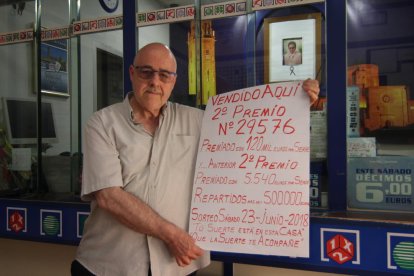 VENDIDO AQUÍ
2º PREMIO
Nº 29576
PREMIADO CON 120 MIL EUROS SERIE
Y... ANTERIOR 2º PREMIO
PREMIADO CON 5.540 EUROS
REPARTIDOS MAS DE 500000
SORTEO SÁBADO, 23-JUNIO-2018
TU SUERTE ESTÁ EN ESTA CASA
QUE LA SUERTE TE ACOMPAÑE
ESTE SÁBADO
DÉCIMOS
6'00
EUROS